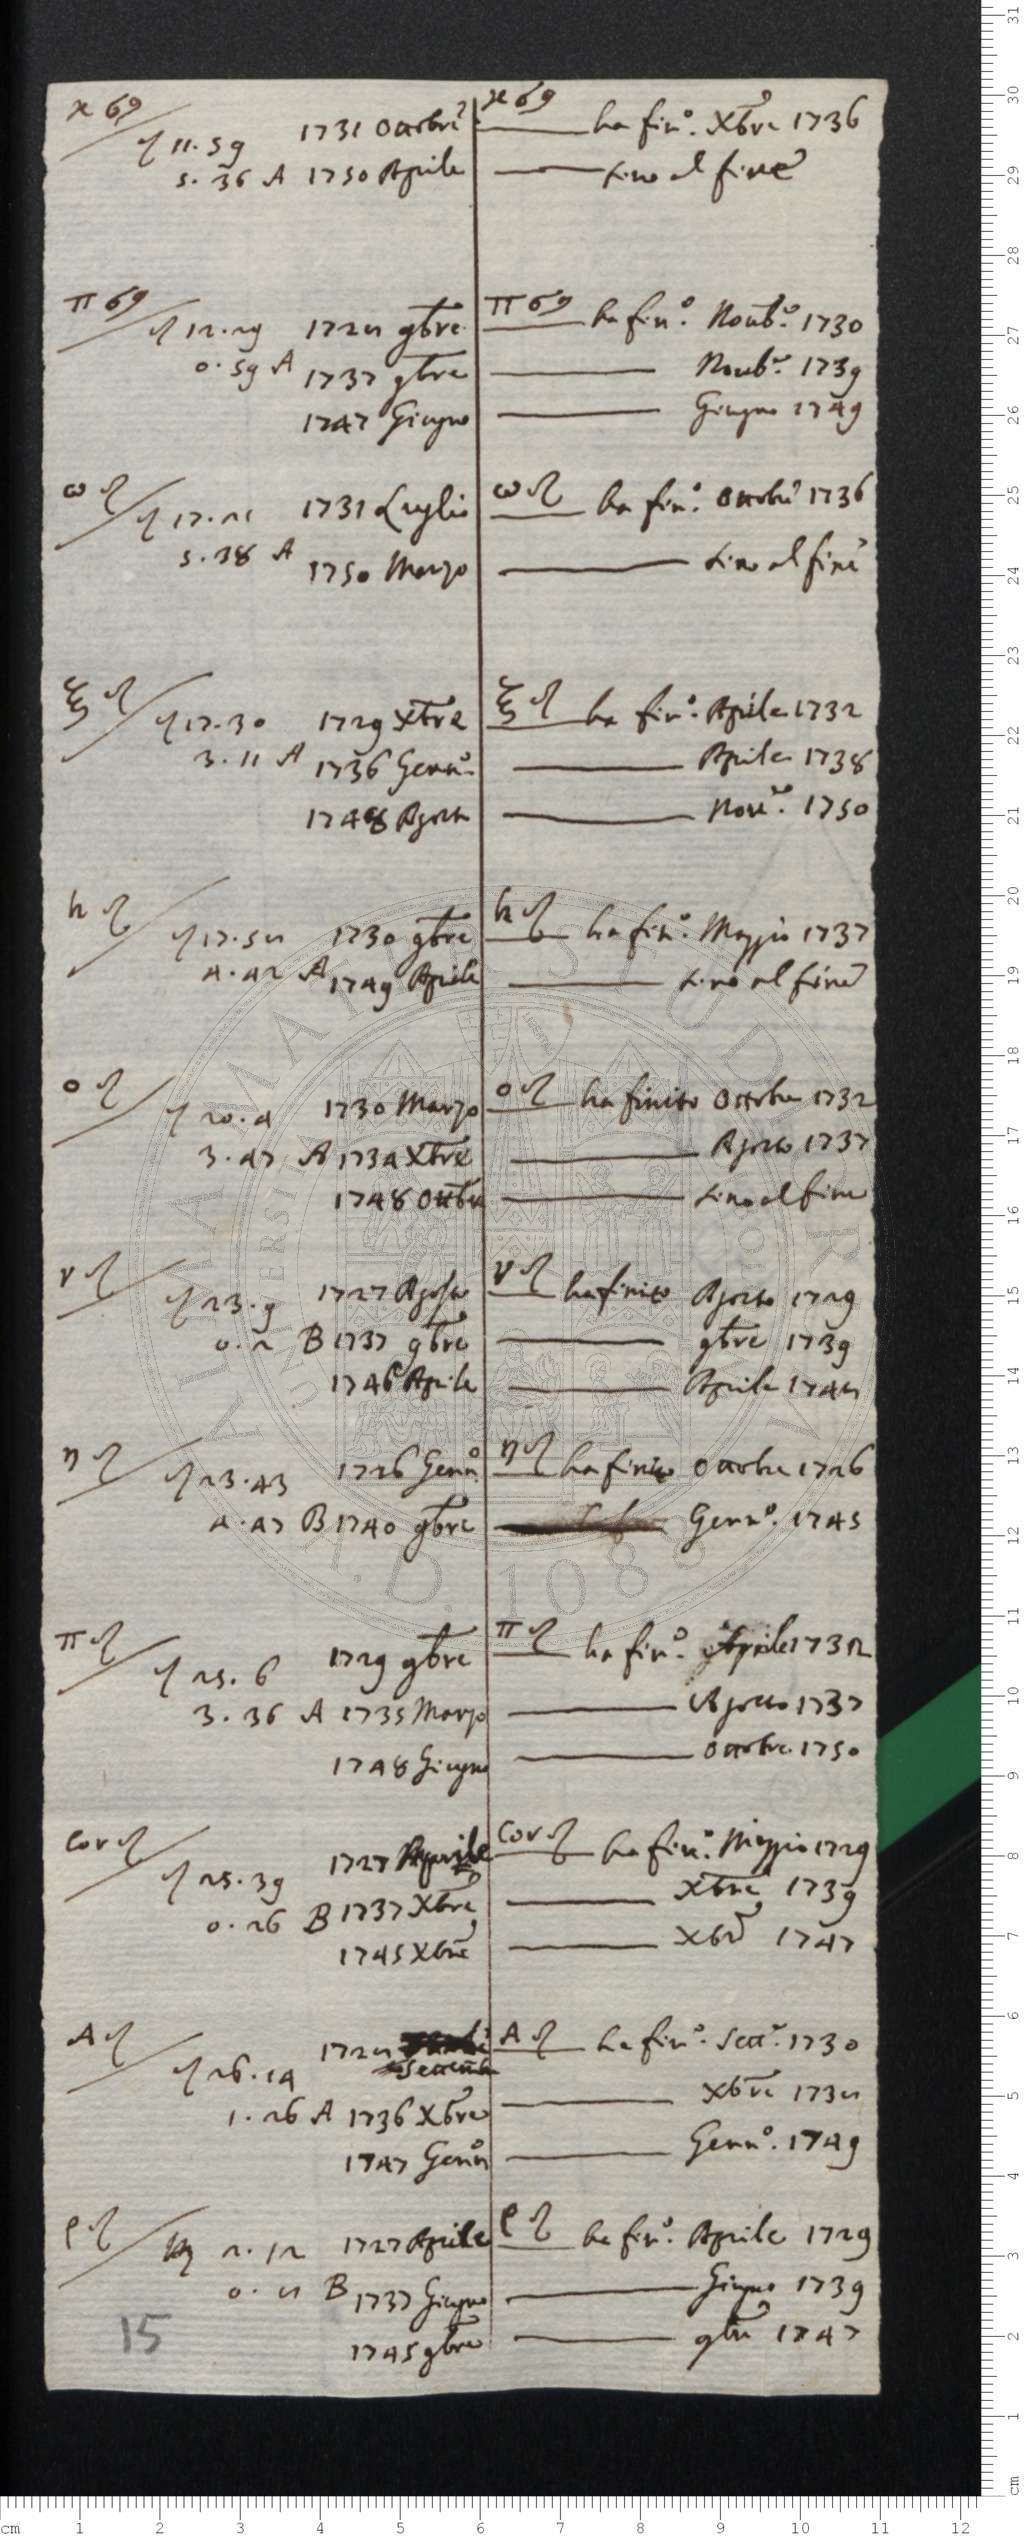 ϰ 69 ϰ 69
♌ 11. 59 1731 Ottobre ha fin.º Xbre 1736
5. 36 A 1750 Aprile fino al fine
π 69 π 69
♌ 12. 29 1728 9bre ha fin.º Novb.º 1730
0. 59 A 1737 9bre Novb.º 1739
1747 Giugno Giugno 1749
ω ♌ ω ♌
♌ 17. 21 1731 Luglio ha fin.º Ottobre 1736
5. 38 A 1750 Marzo fino al fine
ξ ♌ ξ ♌
♌ 17. 30 1729 Xbre ha fin.º Aprile 1732
3. 11 A 1736 Genn.º Aprile 1738
1748 Agosto Nove.º 1750
h ♌ h ♌
♌ 17. 58 1730 9bre ha fin.º Maggio 1737
4. 42 A 1749 Aprile fino al fine
ο ♌ ο ♌
♌ 20. 4 1730 Marzo ha finito Ottobre 1732
3. 47 A 1734 Xbre Agosto 1737
1748 Ottobre fino al fine
ν ♌ ν ♌
♌ 23. 9 1727 Agosto ha finito Agosto 1729
0. 2 B 1737 9bre 9bre 1739
1746 Aprile Aprile 1748
η ♌ η ♌
♌ 23. 43 1726 Genn.º ha finito Ottobre 1726
4. 47 B 1740 9bre Genn.º 1745
π ♌ π ♌
♌ 25. 6 1729 9bre ha fin.º Aprile 1732
3. 36 A 1735 Marzo Agosto 1737
1748 Giugno Ottobre 1750
Cor ♌ Cor ♌
♌ 25. 39 1727 Aprile ha fin.º Maggio 1729
0. 26 B 1737 Xbre Xbre 1739
1745 Xbre Xbre 1747
A ♌ A ♌
♌ 26. 14 1728 ha fin.º Sett.e 1730
Settemb
1. 26 A 1736 Xbre Xbre 1738
1747 Genn.º Genn.º 1749
ρ ♌ ρ ♌
♍ 2. 12 1727 Aprile ha fin.º Aprile 1729
0. 8 B 1737 Giugno Giugno 1739
15
1745 9bre 9bre 1747
ALMA MATER STUDIORUM
A.D. 1088